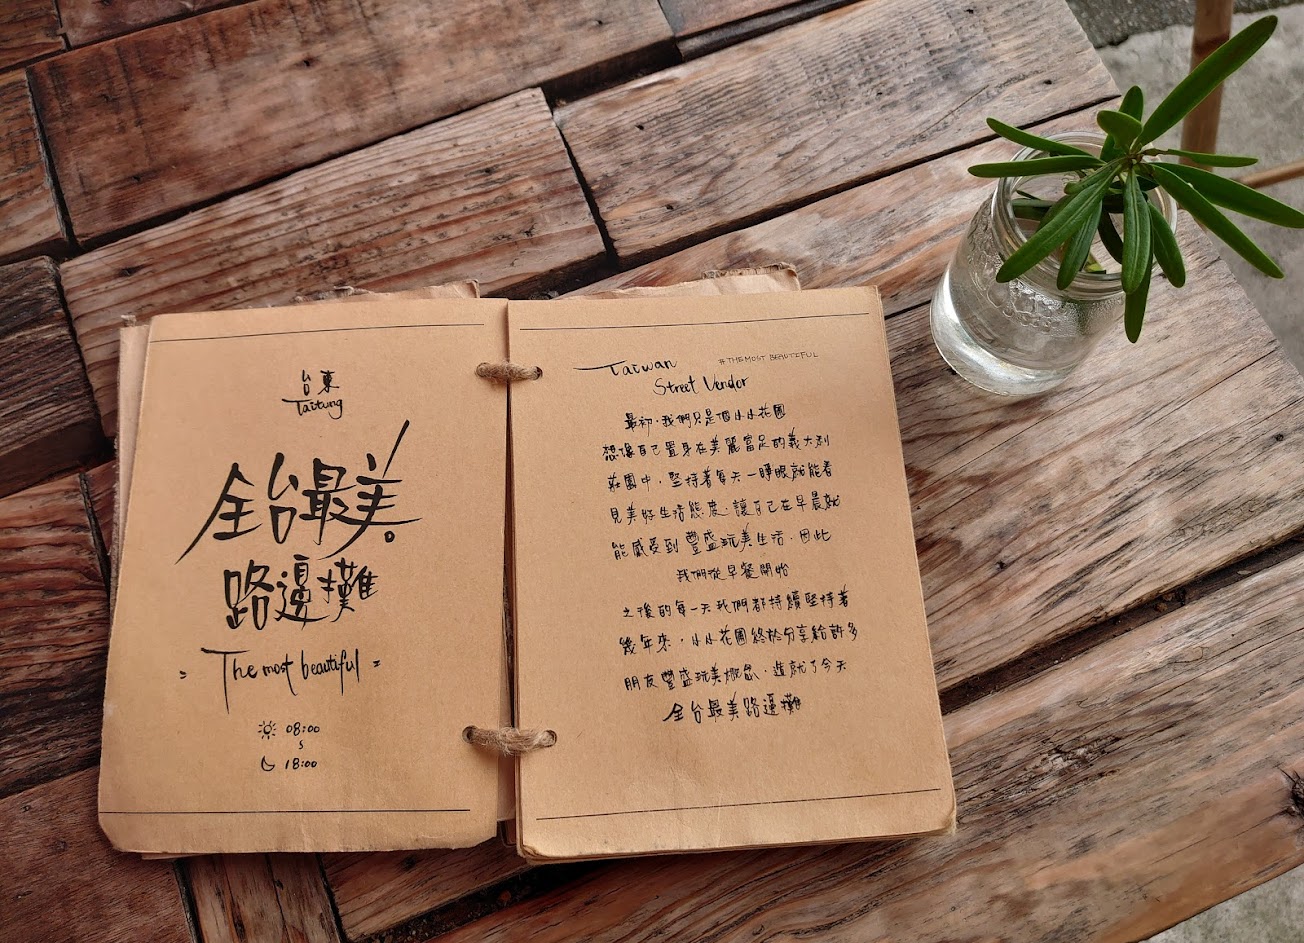 台東
Taitung
全台最美。
路邊攤
" The most beautiful "
08:00
S
18:00
Taiwan #THEMOST BEAUTIFUL
Street Vendor
最初，我們只是個小小花園
想像自己置身在美麗富足的義大利
莊園中，堅持著每天一睜眼就能看
見美好生活態度，讓自己在早晨就
能感受到豐盛玩美生活，因此
我們從早餐開始
之後的每一天我們都持續堅持著
幾年來，小小花園終於分享給許多
朋友豐盛玩美概念，造就了今天
全台最美路邊攤